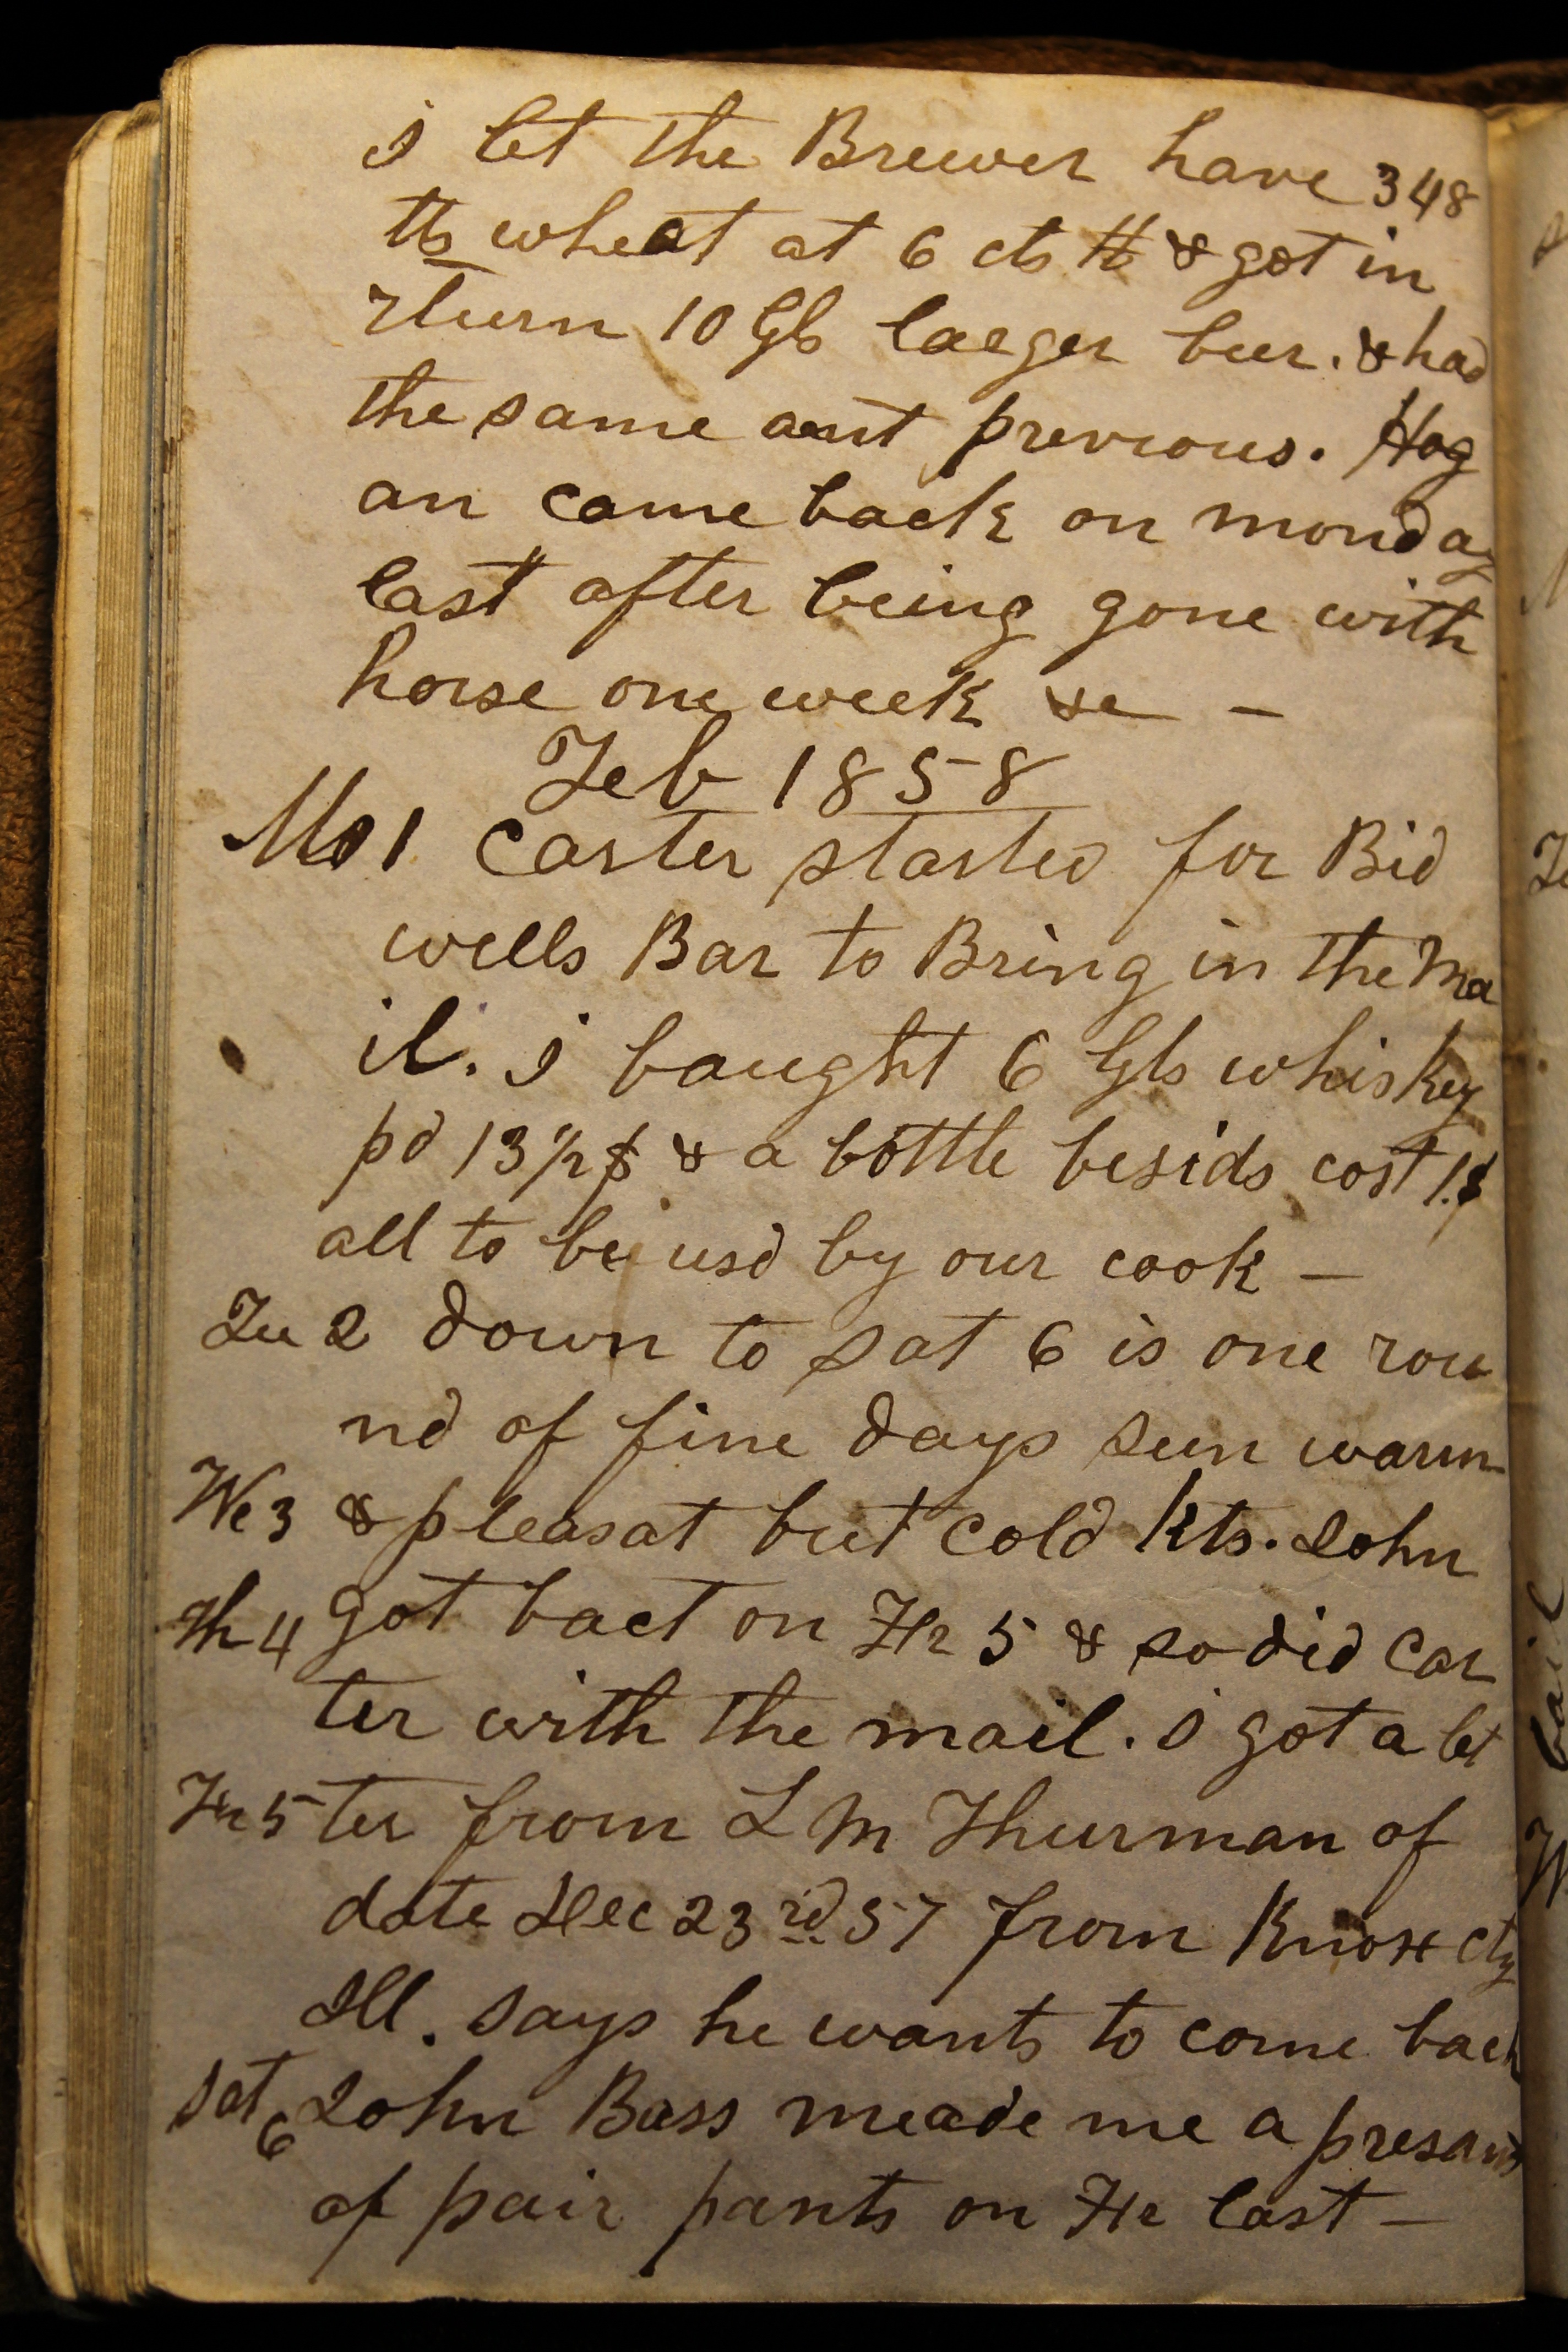 I let the Brewer have 348
lb wheat at 6 cts lb & got in
return 10 Gls laeger beer. & had
the same amt previous. Hag
an came back on monday
last after being gone with
horse one week &c —
Feb 1858
Mo 1 Carter started for Bid
wells Bar to Bring in the Ma
il. I baught 6 Gls whiskey
pd 13 1/2 $ & a bottle besids cost 1.$
all to be usd by our cook —
Tu 2 down to sat 6 is one rou
nd of fine days sun warm
We 3 & pleasat but cold Nts. John
Th 4 got bact on Fr 5 & so did Car
ter with the mail. I got a let
Fr 5 ter from L M Thurman of
date Dec 23rd 57 from Knox cty
Ill. says he wants to come back
Sat 6 John Bass meade me a presant
of pair pants on last —